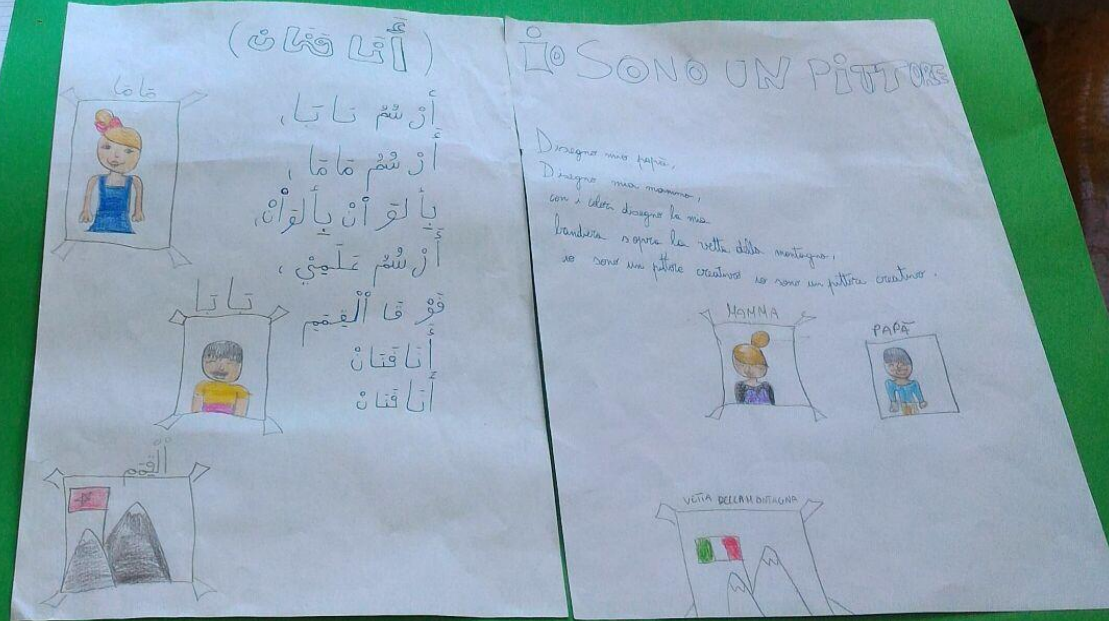 (أَنَا فَنَان)
مَامَا
أَرْسُمُ بَابَا،
أَرْسُمُ مَامَا،
بِأَلوَ اْنْ بِأَلوَاْنْ،
أَرْسُمُ عَلَمِيْ،
فَوْ قَا اْلْقِمَمِ
أَنَا فَنَانْ
أَنَا فَنَانْ
بَابَا
اْلْقِمَمِ
iO SONO UN PiTTORE
Disegno mio papà,
Disegno mia mamma,
con i colori disegno la mia
bandiera sopra la vetta della montagna,
io sono un pittore creativo! io sono un pittore creativo.
MAMMA
PAPÀ
VETTA DELLA MONTAGNA